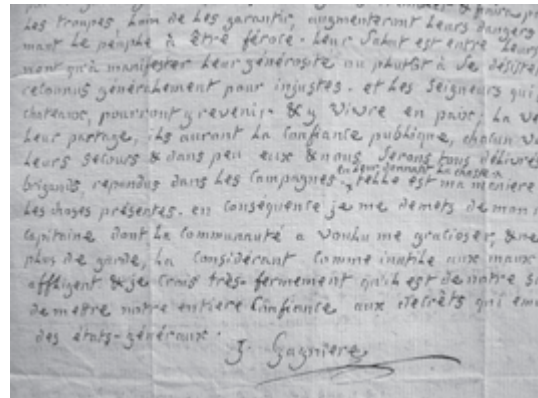 Les troupes loin de les garantir, augmenteront leurs dangers
mant le peuple à être féroce. leur salut est entre leurs
n'ont qu'à manifester leur générosité ou plutôt à se désiste
reconnus généralement pour injustes. et les seigneurs qui
chateaux, pourront y revenir & y vivre en paix, la ve
leur partage, ils auront la confiance publique, chacun v
leurs secours & dans peu eux & nous serons tous délivré
en leur donnant la chasse
brigands, rependus dans les campagnes. telle est ma maniere
les choses présentes. en conséquence je me demets de mon
capitaine dont la communauté a voulu me gracioser, & ne
plus de garde, la considérant comme inutile aux maux
affligent & je crois très-fermement qu'il est de notre
de mettre notre entiere confiance aux decrêts qui
des états-généraux.
J. Gagniere